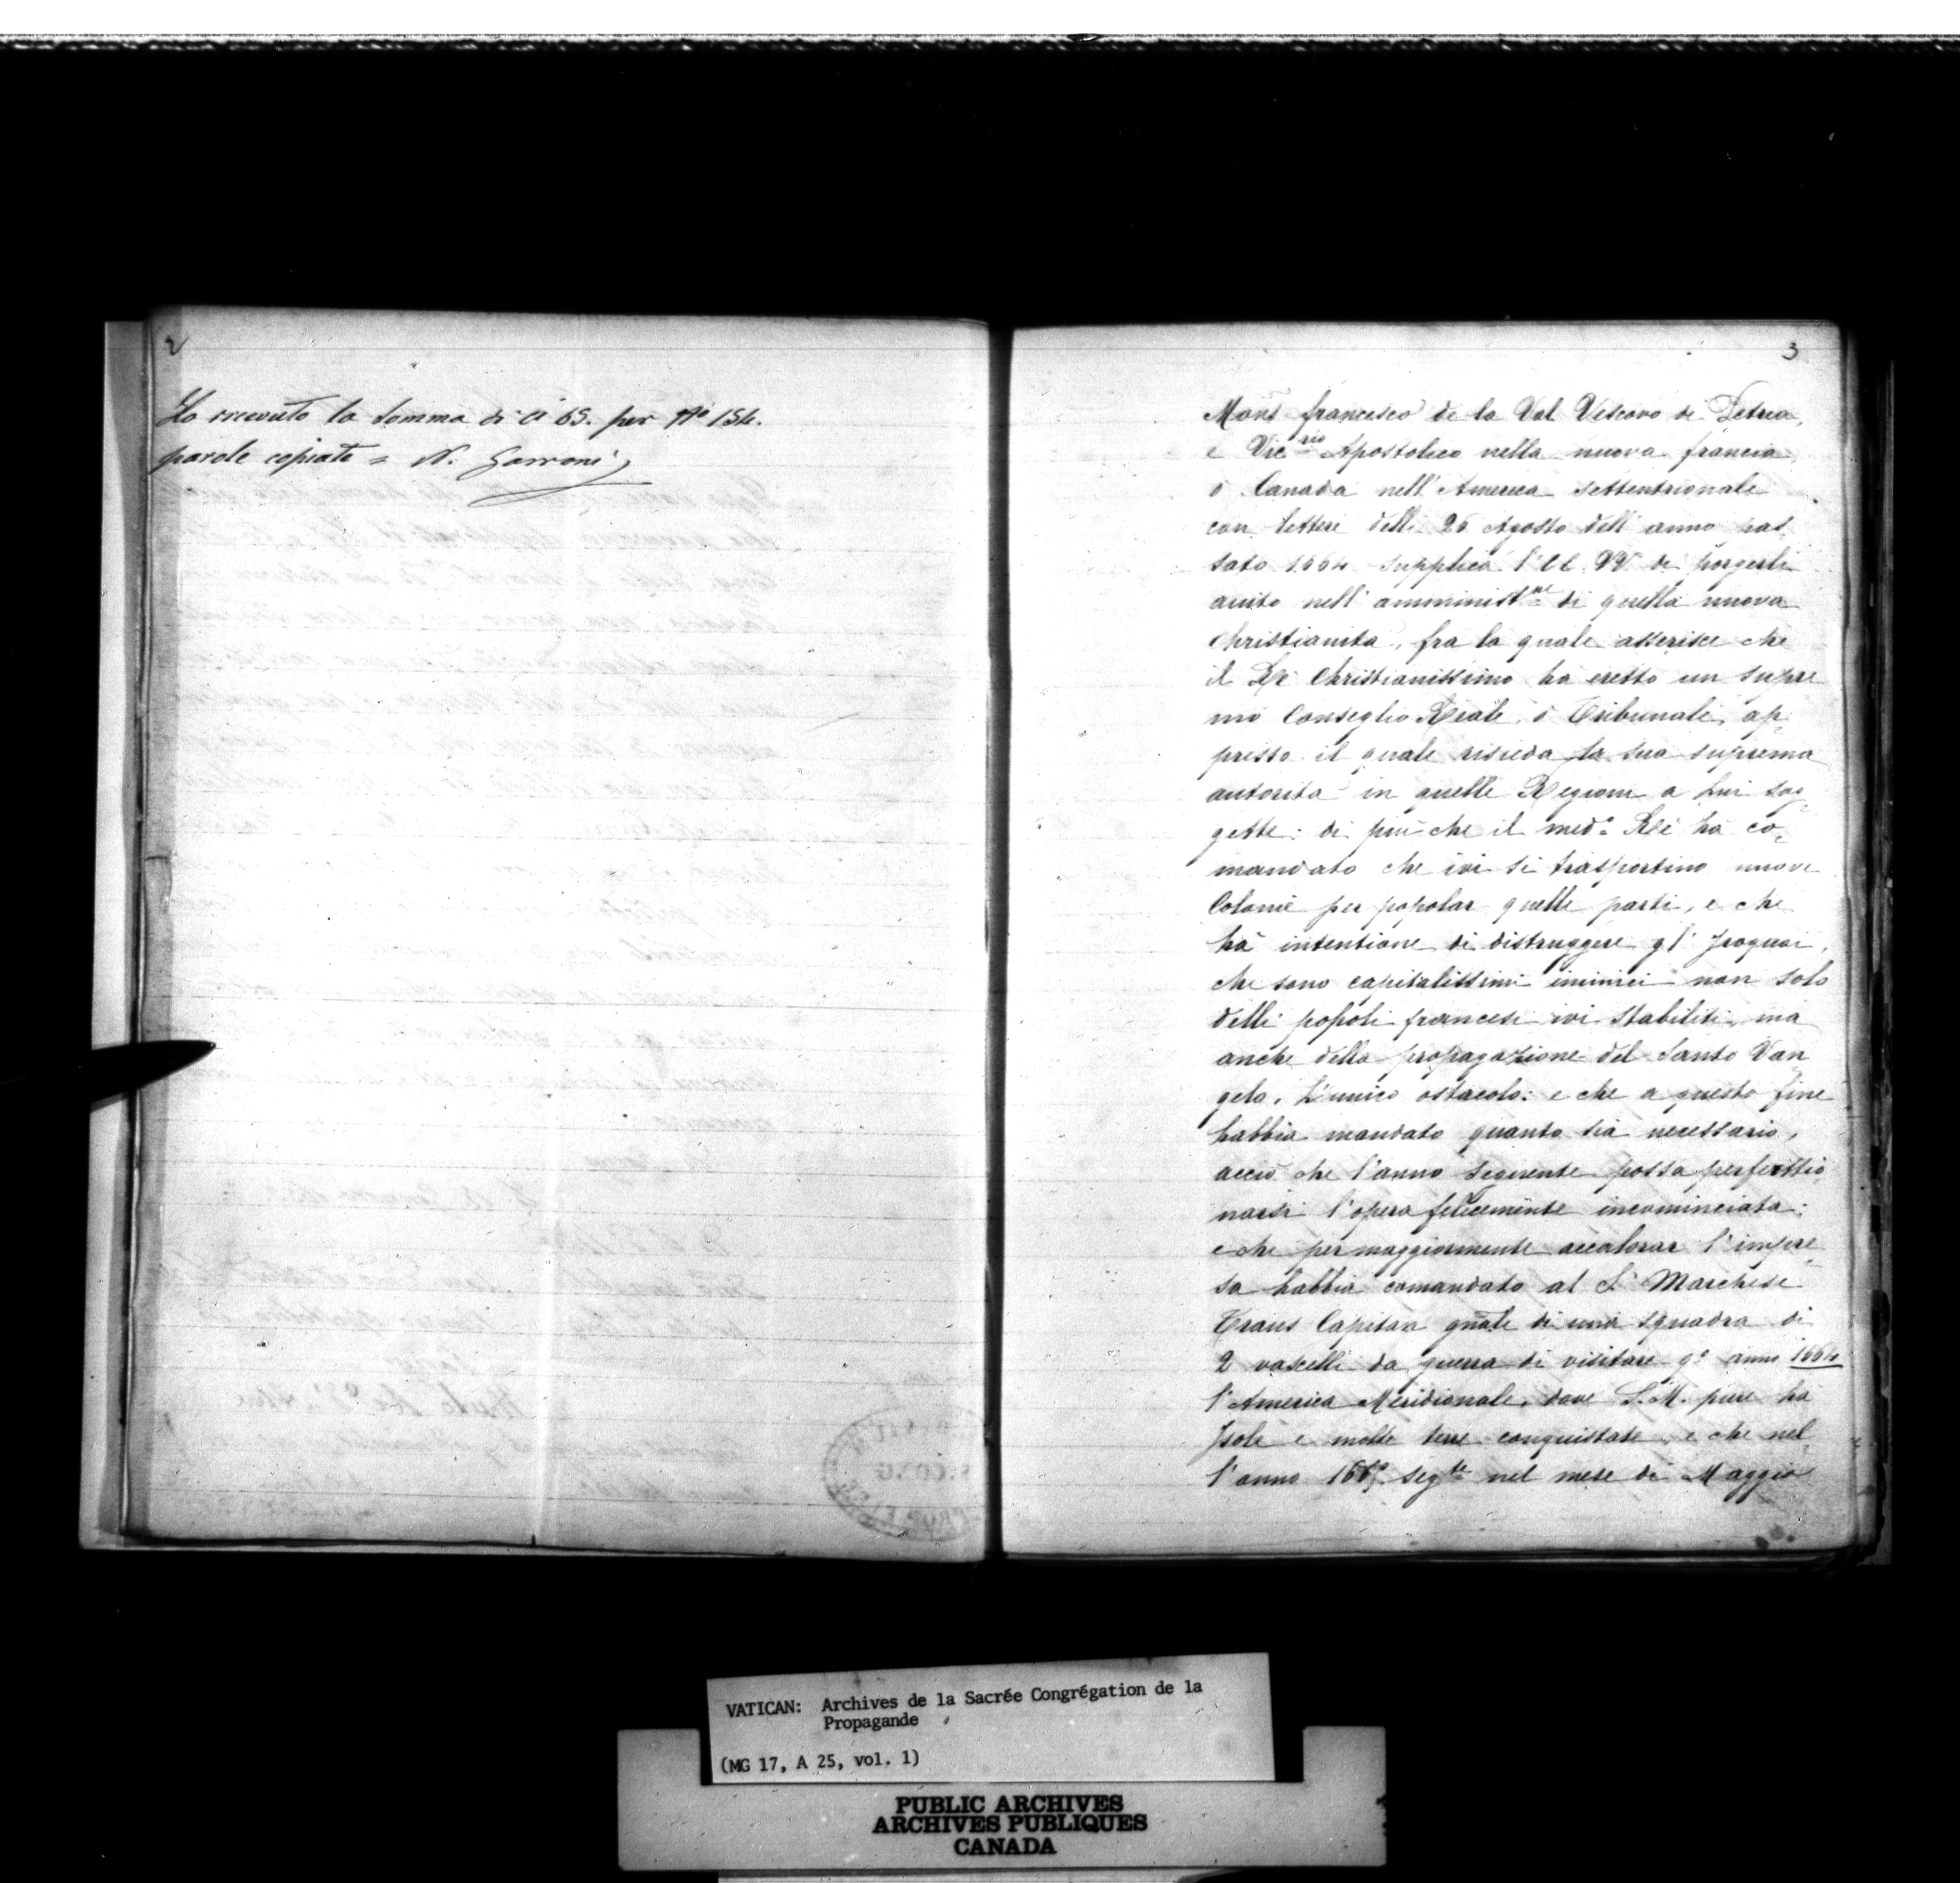 2
Ho ricevuto la somma di cì 65. per Nº 154.
parole copiate = N. Garroni
3
Mons francesco de la Val Vescovo di Petrea,
e Vic.rio Apostolico nella nuova francia
ò Canada nell'America settentrionale
con lettere delli 26 Agosto dell'anno pas,
sato 1664 supplica l'EE. VV. di porgerli
aiuto nell'amminist.ne di quella nuova
Christianita, fra la quale asserisce che
il Rè Christianissimo ha eretto un supre
mo Conseglio Reale, ò Tribunale, ap,
presso il quale risieda la sua suprema
autorita in quelle Regioni a lui sog,
gette: di più che il med.º Rè hà co,
mandato che ivi si trasportino nuove
Colonie per popolar quelle parti, e che
hà intentione di distruggere gl'Iroquoi,
che sono capitalissimi inimici non solo
delli popoli francesi ivi stabiliti, ma
anche della propagazione del Santo Van
gelo, l'unico ostacolo: e che a questo fine
habbia mandato quanto sia necessario,
acciò che l'anno seguente possa perfettio,
narsi l'opera felicemente incominciata:
e che per maggiormente accalorar l'impre
sa habbia comandato al S.r Marchese
Traus Capitan gñale di una squadra di
2 vascelli da guerra di visitare q.º anno 1664
l'America Meridionale, dove S.M. pure ha
Isole e molte terre conquistate, e che nel
l'anno 1665 seg.te nel mese di Maggio
VATICAN: Archives de la Sacrée Congrégation de la
Propagande
(MG 17, A 25, vol. 1)
PUBLIC ARCHIVES
ARCHIVES PUBLIQUES
CANADA